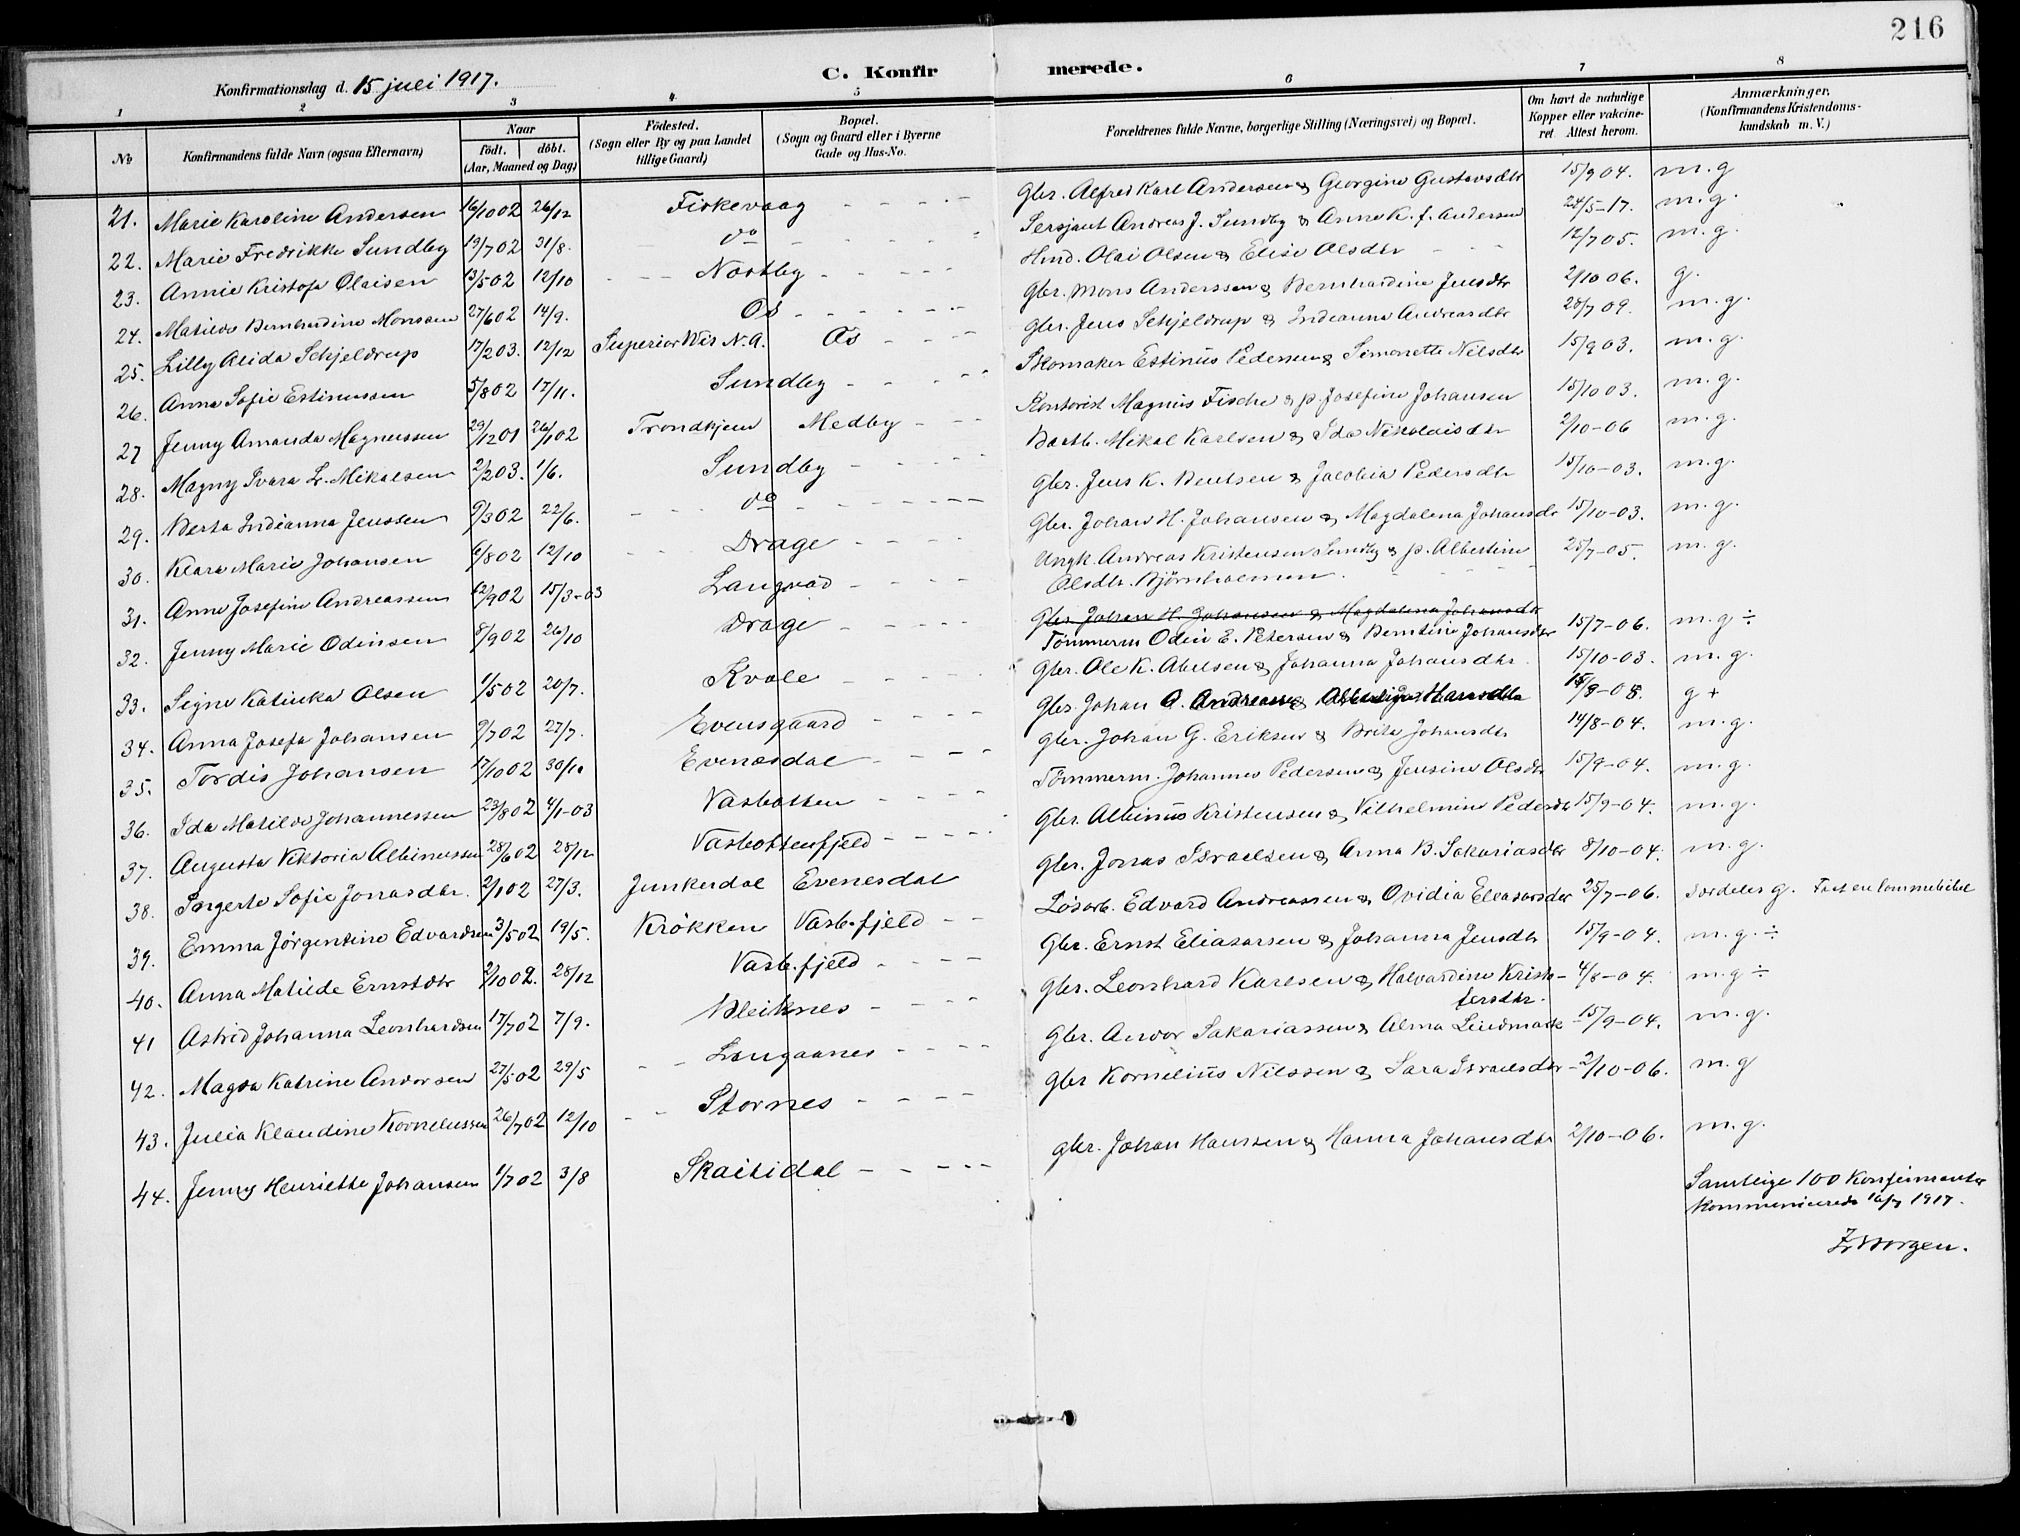 216
Konfirmationsdag d. 15 juli 1917.
C. Konfirmerede.
1 2 3 4 5 6 7 8
No
Konfirmandens fulde Navn (ogsaa Efternavn)
Naar
født. døbt.
(Aar, Maaned og Dag)
Fødested.
(Sogn eller By og paa Landet
tillige Gaard)
Bopæl.
(Sogn og Gaard eller i Byerne
Gade og Hus-No.
Forældrenes fulde Navne, borgerlige Stilling (Næringsvei) og Bopæl.
Om havt de naturlige
Kopper eller vakcine-
ret. Attest herom.
Anmærkninger,
(Konfirmandens Kristendoms-
kundskab m. V.)
21. Marie Karoline Andersen 16/10 02 26/12 Fiskevaag Gbr. Alfred Karl Andersen & Georgine Gustavsdtr 15/9 04. m. g
22. Marie Fredrikke Sundby 19/7 02 31/8. do Sersjant Andreas J. Sundby & Anna K. f. Andersen 24/5-17. m. g.
23. Annie Kristofa Olaisen 13/5 02 12/10 Nostby Hmd. Olai Olsen & Elise Olsdtr 12/7 05. m. g.
24. Matilde Bernhardine Monssen 27/6 02 14/9. Os Gbr. Mons Anderssen & Bernhardine Jensdtr 2/10 06. g.
25. Lilly Alida Schjeldrup 17/2 03. 12/12 Superior Wis N. A. Os Gbr. Jens Schjeldrup & Indianna Andreasdtr 28/7 09. m. g.
26. Anna Sofie Estinussen 5/8 02 17/11. Sundby Skomaker Estinus Pedersen & Simonette Nilsdtr 15/9 03. m. g.
27 Jenny Amanda Magnussen 29/12 01 26/1 02 Trondhjem Medby Kontorist Magnus Fische & p. Josefine Johansen 15/10 03. m. g.
28. Magny Ivara L. Mikalsen 2/2 03. 1/6. Sundby Baatb. Mikal Karlsen & Ida Nikolaisdtr 2/10-06 m. g.
29. Berta Indianna Jenssen 9/3 02 22/6. do Gbr. Jens K. Bentsen & Jacobia Pedersdtr 15/10-03. m. g.
30. Klara Marie Johansen 6/8 02 12/10 Drage Gbr. Johan H. Johansen & Magdalena Johansdtr 15/10-03. m. g.
31. Anna Josefine Andreassen 12/9 02 15/3-03 Langvad Ungk. Andreas Kristensen Sundby & p. Albertine
Olsdtr. Bjørnholmen. 25/7-05. m. g.
Gbr. Johan H. Johansen & Magdalena Johansdtr
32. Jenny Marie Odinsen 8/9 02 26/10 Drage Tømmerm Odin E. Petersen & Berntine Johansdtr 15/7-06. m. g ÷
33. Signe Katinka Olsen 1/5 02 20/7. Kvale Gbr. Ole K. Abelsen & Johanna Johansdtr. 15/10-03. m. g.
34. Anna Josefa Johansen 9/7 02 27/7. Evensgaard Gbr. Johan A. Andreassen & Hansdtr 15/9-08. g +
35. Tordis Johansen 17/10 02 30/11 Evenesdal Gbr. Johan G. Eriksen & Brita Johansdtr 14/8-04. m. g.
36. Ida Matilde Johannessen 23/8 02 4/1-03 Vasbotten Tømmerm. Johannes Pedersen & Jensine Olsdtr 15/9-04. m. g.
37. Augusta Viktoria Albinussen 28/6 02 28/12 Vasbottenfjeld Gbr. Albinus Kristensen & Vilhelmine Pedersdtr 15/9-04. m. g.
38. Ingerte Sofie Jonasdtr. 2/1 02 27/3. Junkerdal Evenesdal Gbr. Jonas Israelsen & Anna B. Sakariasdtr 8/10-04. m. g.
39. Emma Jørgentine Edvardsen 3/5 02 19/5. Krökken Vasb.fjeld Løsarb. Edvard Andreassen & Ovidia Eleasarsdtr 25/7-06. særdeles g. Fast en lommebibel
40. Anna Matilde Ernstdtr 2/10 02. 28/12 Vasb.fjeld Gbr. Ernst Eliasarsen & Johanna Jensdtr 15/9-04. m. g. ÷
41 Astrid Johanna Leonhardsen 17/7 02 7/9. Bleiknes Gbr. Leonhard Karlsen & Halvardine Kristo-
fersdtr. 4/8-04. m. g ÷
42. Magda Katrine Andorsen 27/5 02 29/5 Langaanes Gbr. Andor Sakariassen & Alma Lindmark 15/9-04. m. g.
43. Julia Klaudine Korneliussen 26/7 02 12/10 Stornes Gbr Kornelius Nilssen & Sara Israelsdtr 2/10-06. m. g
44. Jenny Henriette Johansen 1/7 02 3/8 Skaitidal Gbr. Johan Hanssen & Hanna Johansdtr 2/10-06. m. g.
Samtlige 100 Konfirmanter
kommunicerede 16/7 1917.